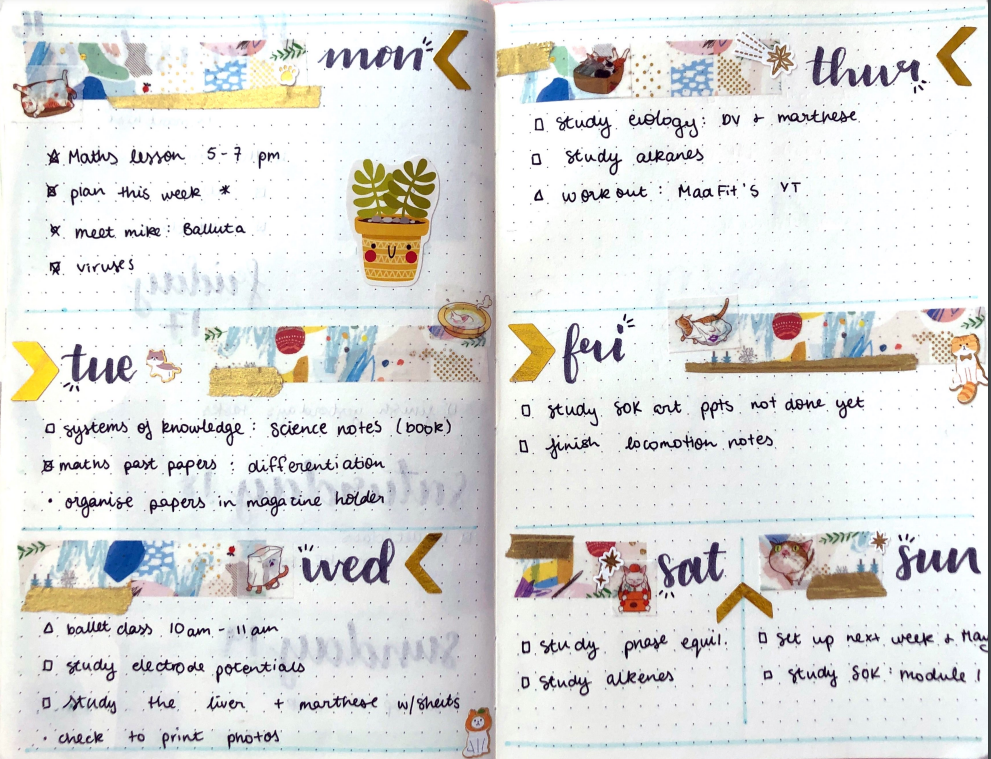 mon
Maths lesson 5-7 pm
plan this week *
meet mike: Balluta
viruses
tue
systems of knowledge: science notes (book)
maths past papers: differentiation
• organise papers in magazine holder
wed
ballet class 10am - 11am
study electrode potentials
study the liver + marthese w/sheets
• check to print photos
thur
study ecology: DV + marthese
study alkanes
work out: MadFit's YT
fri
study SOK art ppts not done yet
finish locomotion notes
sat
study phase equil.
study alkenes
sun
set up next week + May
study SOK: module 1